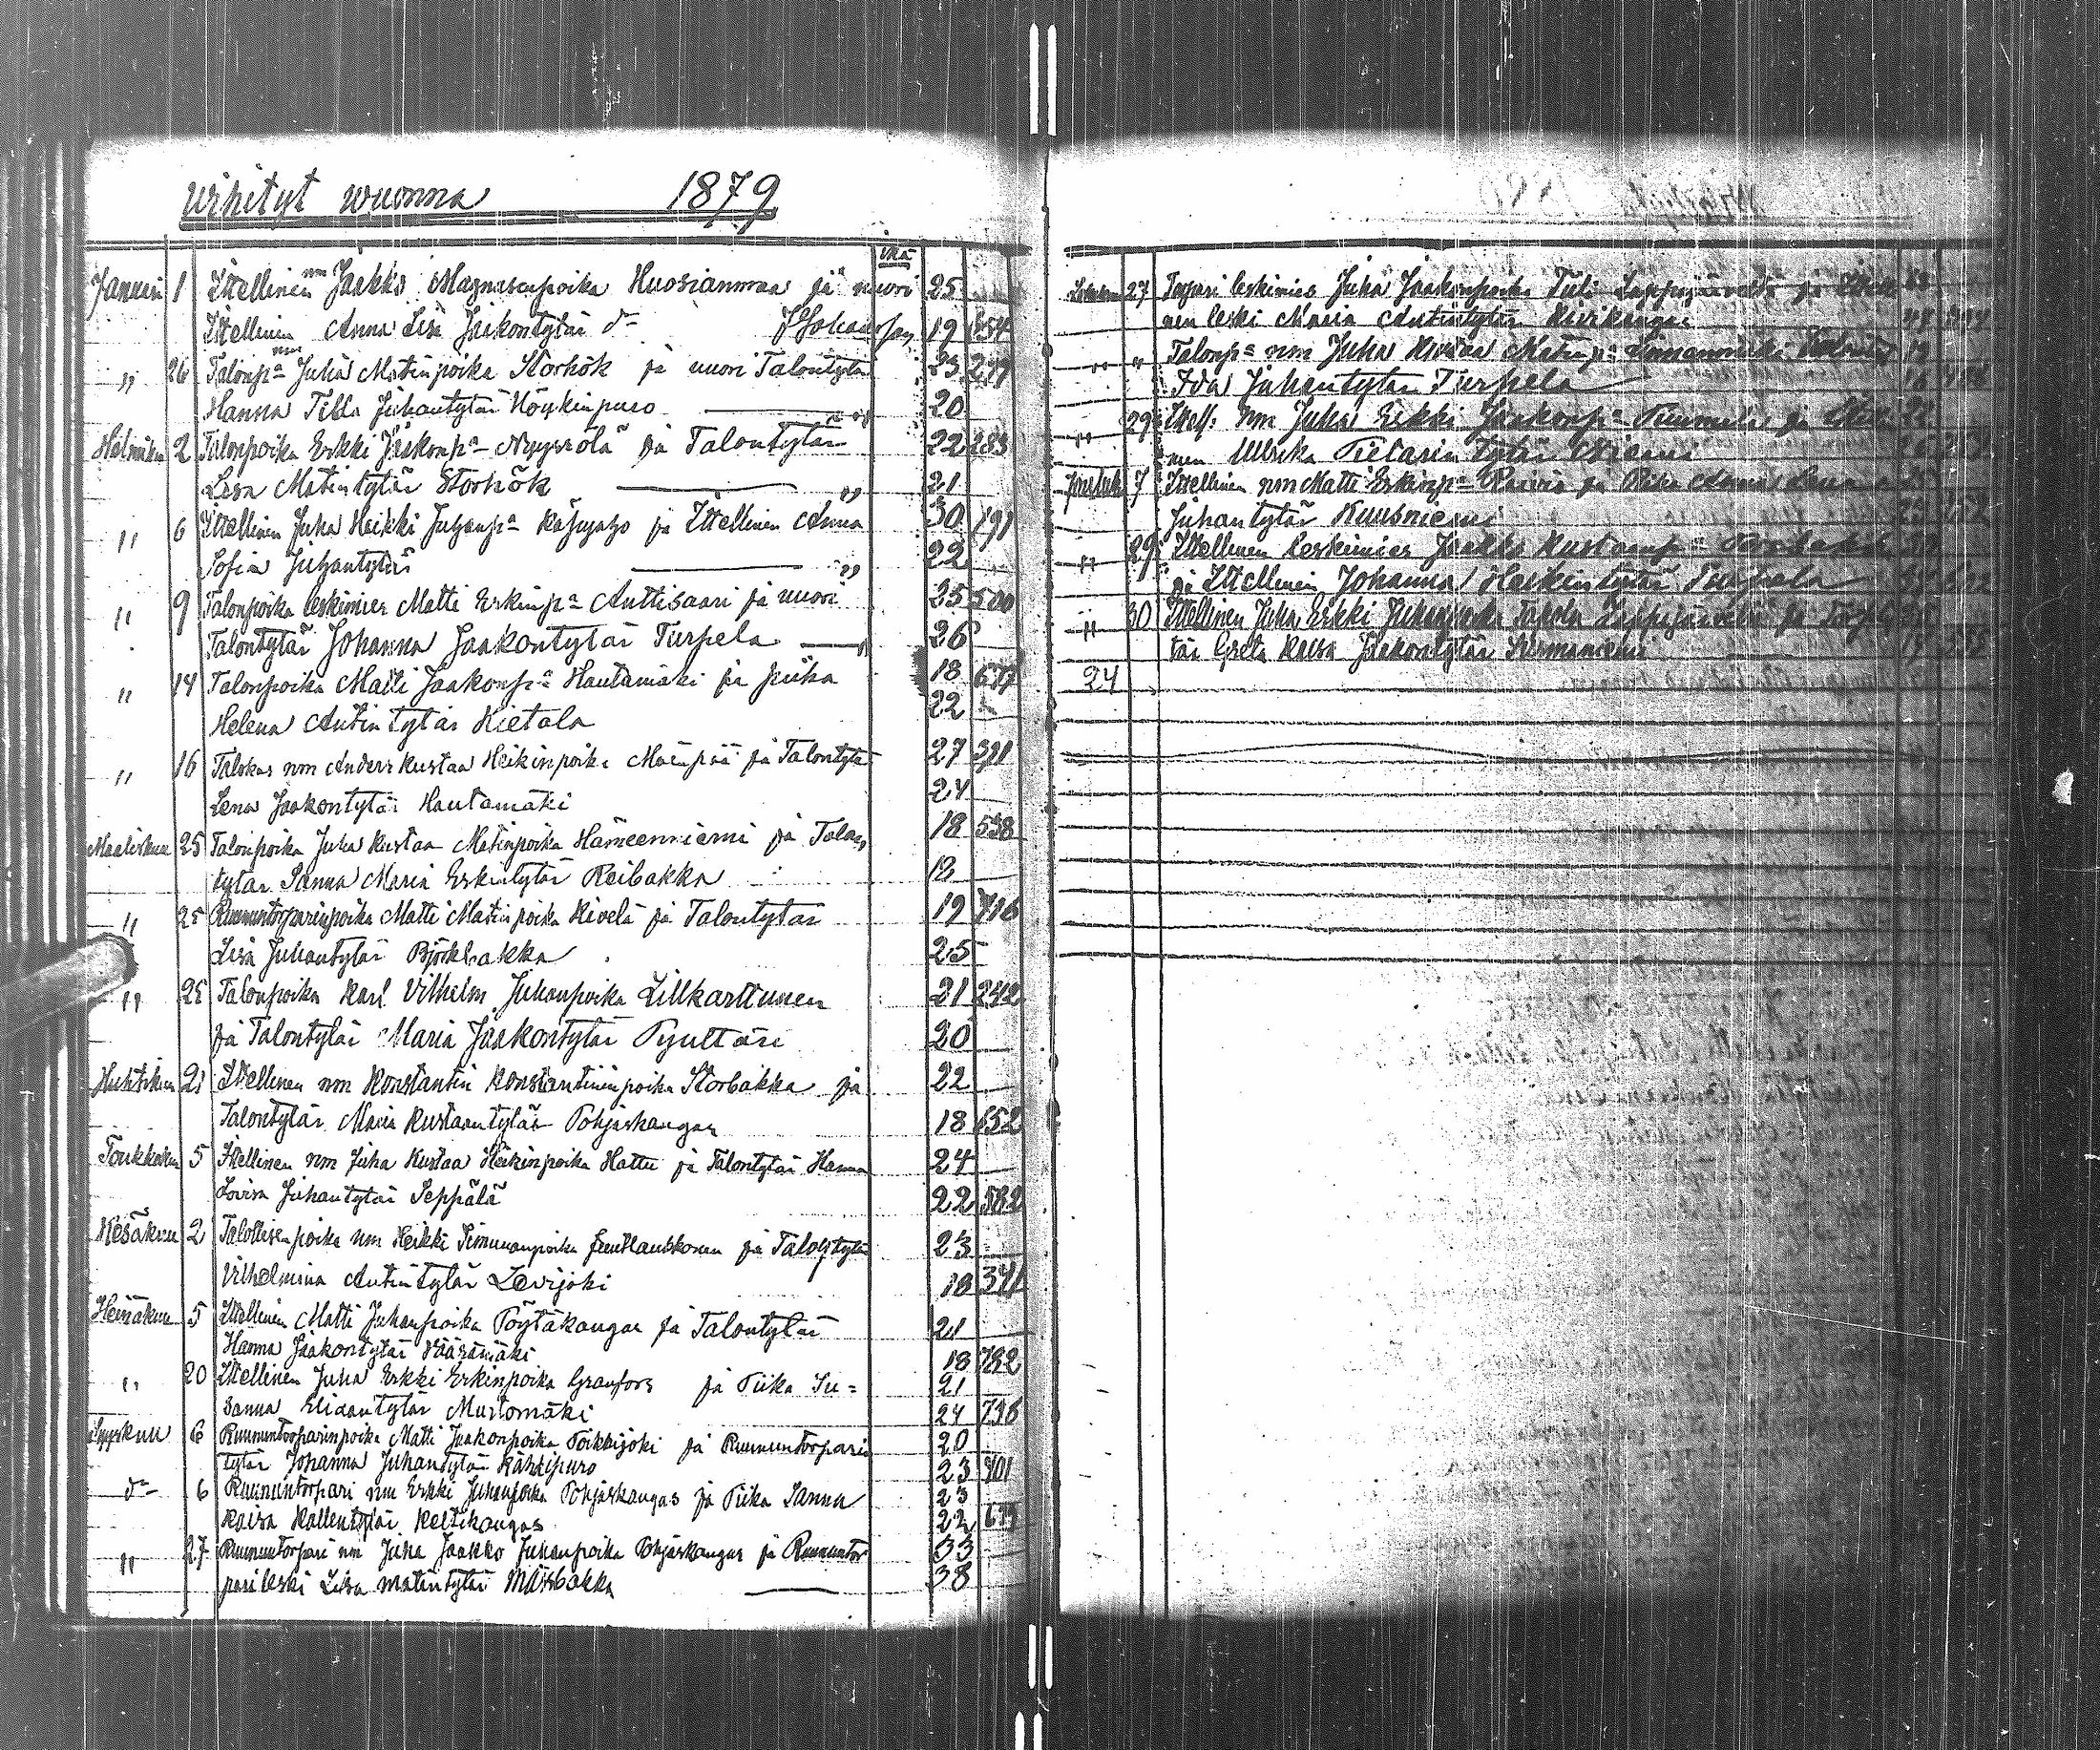 Vihityt wuonna 1879
Ikä
Januari 1 Ittellinen nm Jaakko Magnusenpoika Huosianmaa ja nuori 25
Ittellinen Anna Lisa Jaakontytär dº 19 654
" 26 Talonpª nm Juha Matinpoika Storhök ja nuori Talontytär 23 249
Hanna Tilda Juhantytär Höykinpuro " 20
Helmikuu 2 Talonpoika Erkki Jaakonpª Nyyssölä ja Talontytär 22 283
Lisa Matintytär Storhök " 21
" 6 Ittellinen Juha Heikki Juhanpª ja Ittellinen Anna 30 191
Sofia Juhantytär " 22
" 9 Talonpoika leskimies Matti Erkinpª Anttisaari ja nuori 35 500
Talontytär Johanna Jaakontytär Turpela " 26
" 14 Talonpoika Matti Jaakonpª Hautamäki ja piika 18 677
Helena Antintytär Hietala 22
" 16 nm Anders Kustaa Heikinpoika Mäenpää ja Talontytär 27 391
Lena Jaakontytär Hautamäki 24
Maaliskuu 25 Talonpoika Juha Kustaa Matinpoika Hämeenniemi ja Talon 18 538
tytär Sanna Maria Erkintytär Reibakka 18
" 25 Ruununtorparinpoika Matti Matinpoika Kivelä ja Talontytär 19 716
Lisa Juhantytär Björkbakka 25
" 25 Talonpoika Karl Vilhelm Juhanpoika Lillkarttunen 21 242
ja Talontytär Maria Jaakontytär Pyulttäri 20
Huhtikuu 21 Ittellinen nm Konstantin Konstantininpoika Storbakka ja 22
Talontytär Maria Kustaantytär Pohjaskangas 18 652
Toukokuu 5 Ittellinen nm Juha Kustaa Heikinpoika Hattu ja Talontytär Hanna 24
Lovisa Juhantytär Seppälä 22 582
Kesäkuu 2 Talollisenpoika nm Heikki Simunanpoika ja Talontytär 23
Vilhelmina Antintytär Levijoki 18 341
Heinäkuu 5 Ittellinen Matti Juhanpoika Pöytäkangas ja Talontytär 21
Hanna Jaakontytär Vääramäki 18 782
" 20 Ittellinen Juha Erkki Erkinpoika Granfors ja Piika Su= 21
sanna Eliaantytär Mustomäki 24 736
Syyskuu 6 Ruununtorparinpoika Matti Jaakonpoika Poikkijoki ja Ruununtorparin 20
tytär Johanna Juhantytär Rähkäpuro 23 801
dº 6 Ruununtorpari nm Erkki Juhanpoika Pohjaskangas ja Piika Sanna 23
Kaisa Kallentytär Keltikangas 22 679
" 27 Ruununtorpari nm Juha Jaakko Juhanpoika Pohjaskangas ja Ruununtor 33
pari leski Lisa Matintytär Måsbakka 38
27 leskimies Juha Jaakonpoika Tuli Lappajärveltä ja
nen leski Maria Antintytär Kivikangas
" " Talonpª nm Juha Kustaa Matinpª
Ida Juhantytär Turpela
" 29 nm Juha Erkki Jaakonpª ja
nen Ulrika Pietarintytär Niemi
Jouluk 7 Ittellinen nm Matti Erkinpª ja Piika Anna Lena
Juhantytär Kuusniemi
" 29 Ittellinen leskimies Jaakko Kustaanpª
ja Ittellinen Johanna Heikintytär Turpela
" 30 Ittellinen Juha Erkki Juhanpoika Lappajärveltä ja
tär Greta Kaisa Jaakontytär
24